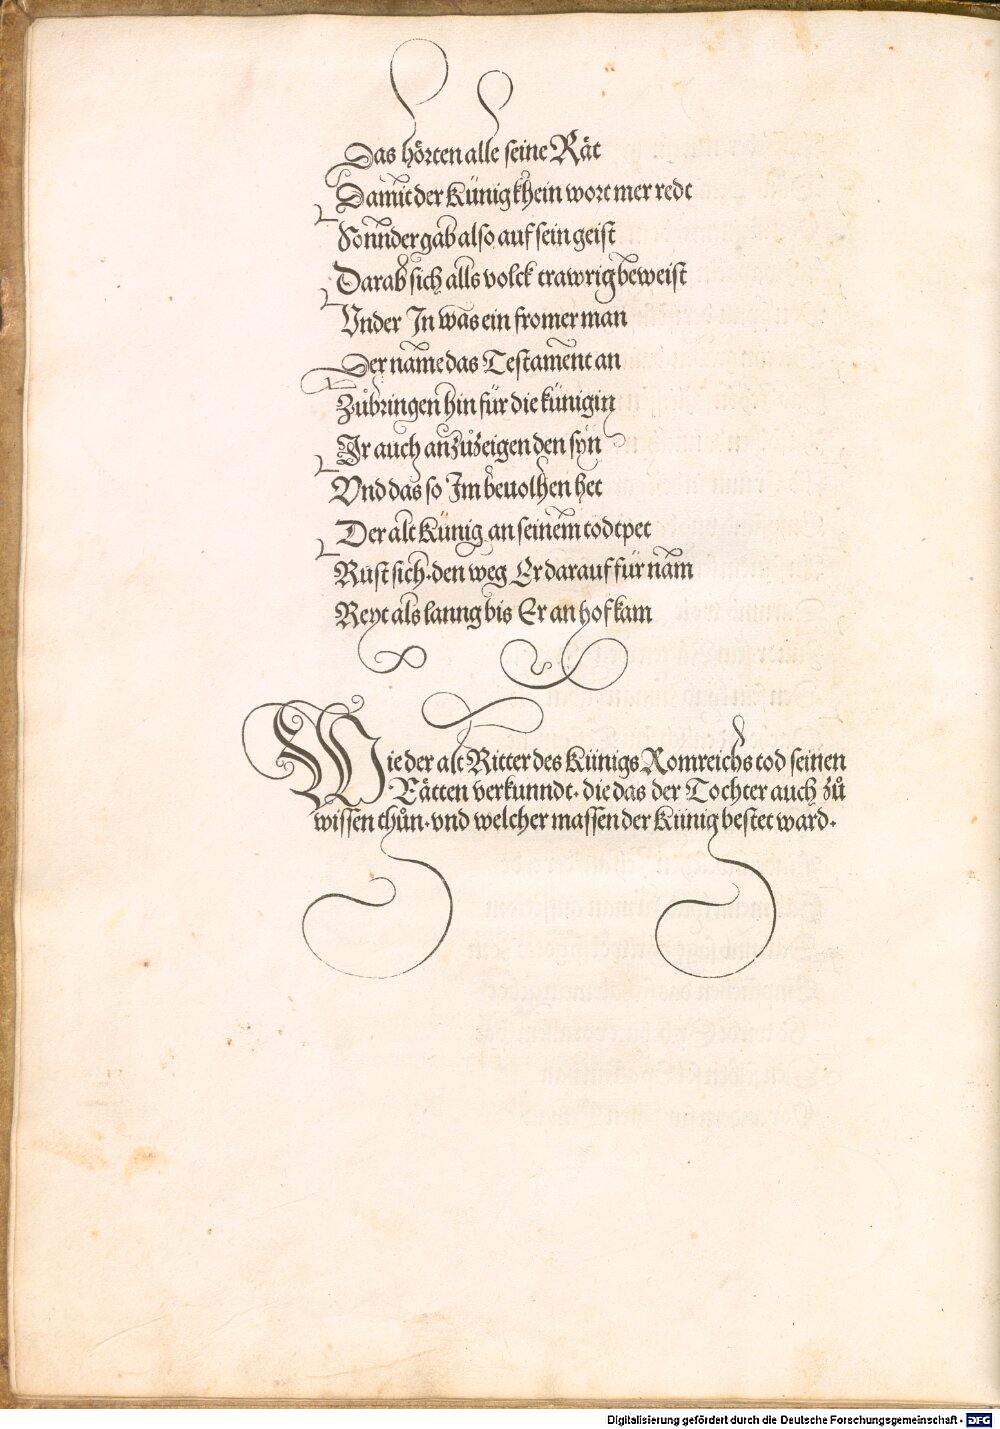 Das hörten alle seine Rät
Damit der Künig khein wort mer redt
Sonnder gab also auf sein geist
Darab sich alls volck trawrig beweist
Vnder In was ein fromer man
Der name das Testament an
Zůbringen hin für die künigin
Ir auch anzůzeigen den syn
Vnd das so Im beuolhen het
Der alt Künig an seinem todtpet
Rust sich. den weg Er darauf für nam
Reyt als lanng bis Er an hof kam
Wie der alt Ritter des Künigs Romreichs tod seinen
Rätten verkunndt. die das der Tochter auch zů
wissen thůn. vnd welcher massen der Künig bestet ward.
Digitalisierung gefördert durch die Deutsche Forschungsgemeinschaft - DFG